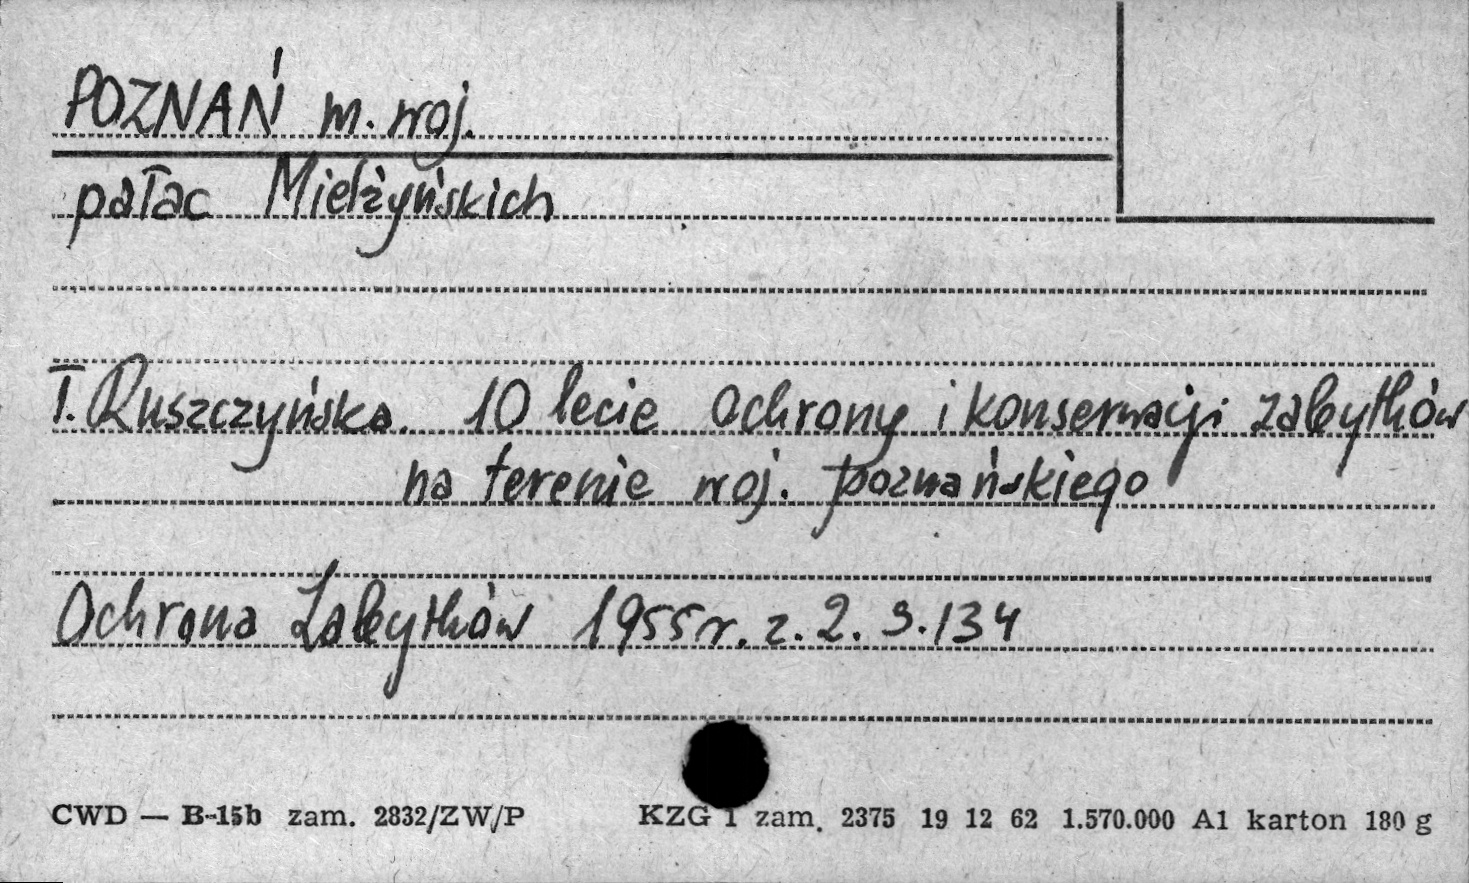 POZNAŃ m. woj.
pałac Mielżyńskich
T. Ruszczyńska. 10 lecie Ochrony i konserwacji zabytków
na terenie woj. poznańskiego
Ochrona Zabytków 1955 r. z. 2. s. 134
CWD — B-15b zam. 2832/ZW/P KZG 1 zam. 2375 19 12 62 1.570.000 A1 karton 180 g